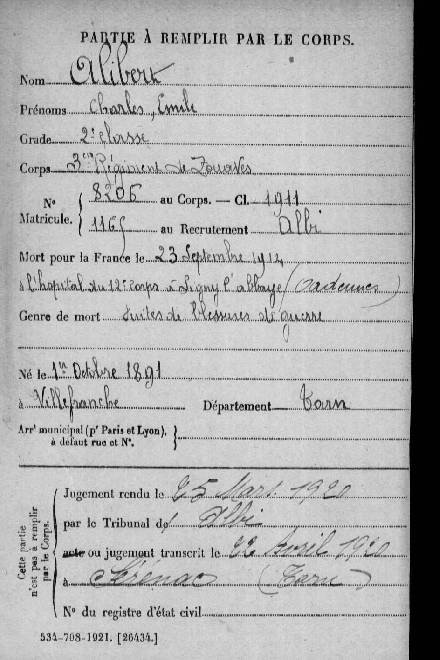 PARTIE À REMPLIR PAR LE CORPS.
Nom Alibert
Prénoms Charles, Emile
Grade 2e classe
Corps 3me Régiment de Zouaves
N° Matricule. { 8206 au Corps. — Cl. 1911
1165 au Recrutement Albi
Mort pour la France le 23 Septembre 1914
à l'hopital du 12e corps à Ligny l'abbaye (Ardennes)
Genre de mort Suites de blessures de guerre
Né le 1er Octobre 1891
à Villefranche Département Tarn
Arrt municipal (pr Paris et Lyon), à défaut rue et N°. }
Cette partie n'est pas à remplir par le Corps.
Jugement rendu le 25 Mars 1920
par le Tribunal de Albi
acte ou jugement transcrit le 22 Avril 1920
à Sérénac (Tarn)
N° du registre d'état civil
534-708-1921. [26434.]